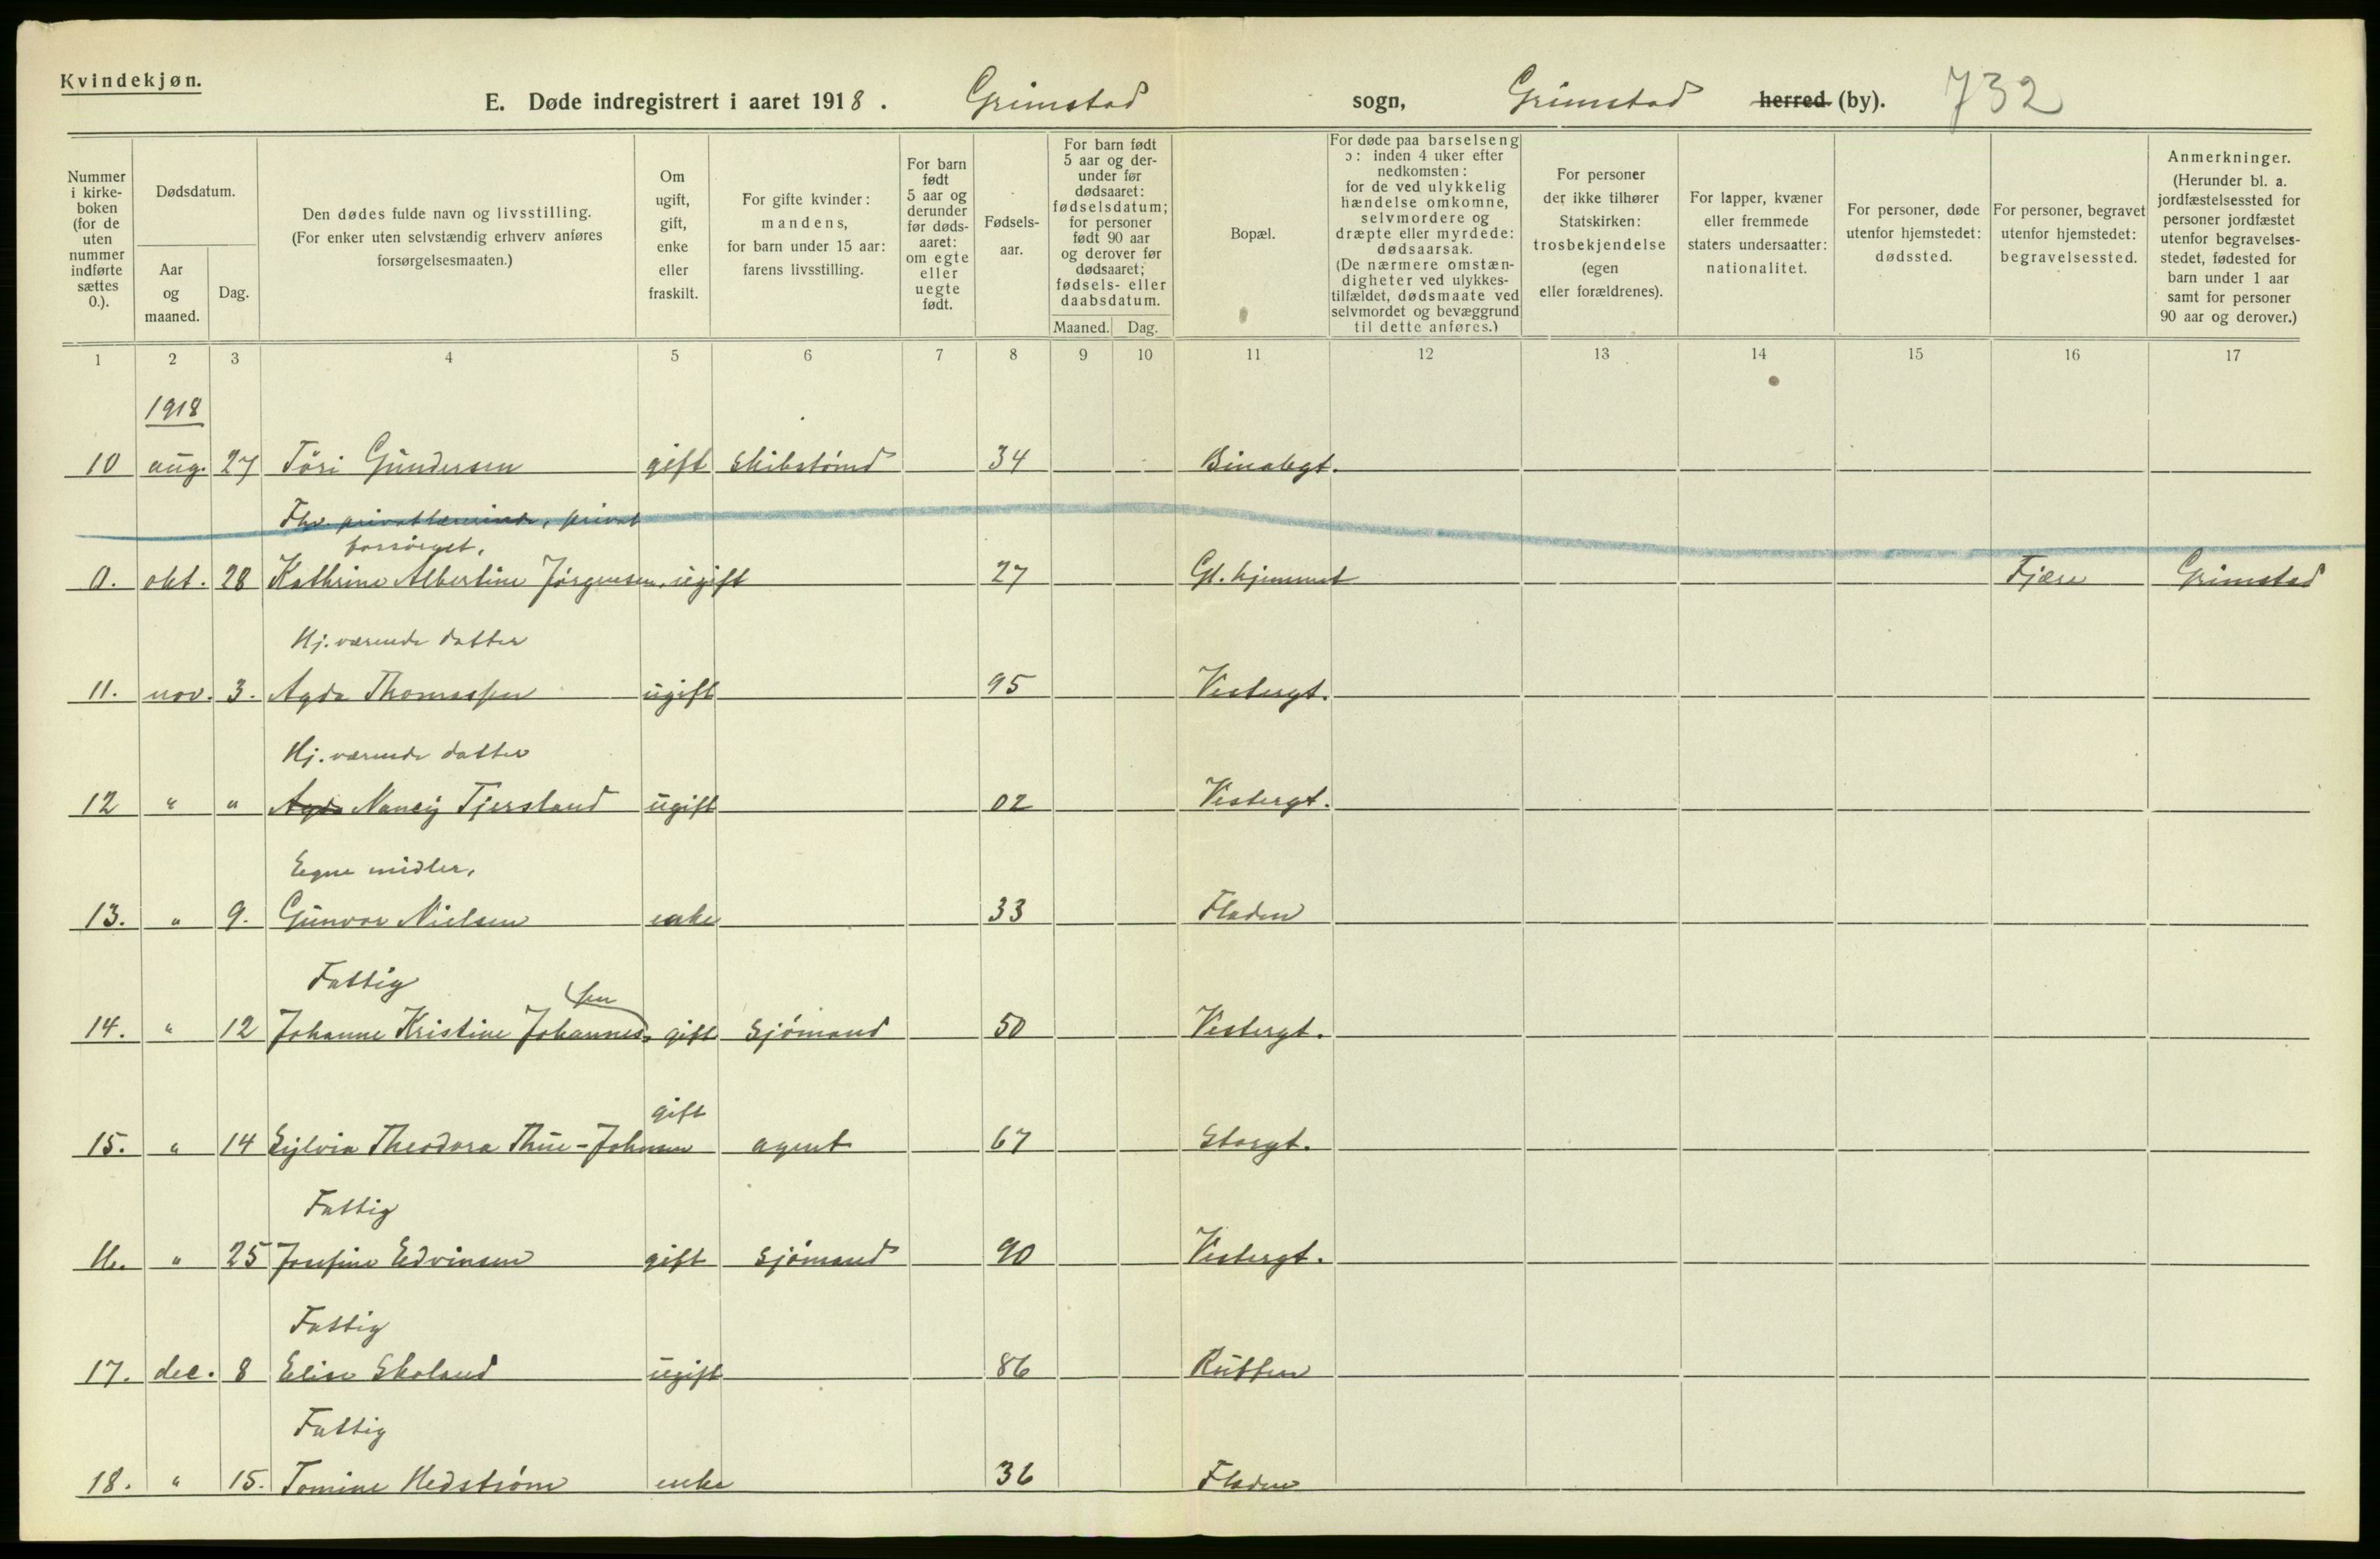 Kvindekjøn.
E. Døde indregistrert i aaret 1918. Grimstad sogn, Grimstad herred (by). 732
Nummer i kirke-boken (for de uten nummer indførte sættes 0.).
Dødsdatum.
Aar og maaned.
Dag.
Den dødes fulde navn og livsstilling. (For enker uten selvstændig erhverv anføres forsørgelsesmaaten.)
Om ugift, gift, enke eller fraskilt.
For gifte kvinder: mandens, for barn under 15 aar: farens livsstilling.
For barn født 5 aar og derunder før døds-aaret: om egte eller uegte født.
Fødsels-aar.
For barn født 5 aar og der-under før dødsaaret: fødselsdatum; for personer født 90 aar og derover før dødsaaret; fødsels- eller daabsdatum.
Maaned. Dag.
Bopæl.
For døde paa barselseng ɔ: inden 4 uker efter nedkomsten: for de ved ulykkelig hændelse omkomne, selvmordere og dræpte eller myrdede: dødsaarsak. (De nærmere omstæn-digheter ved ulykkes-tilfældet, dødsmaate ved selvmordet og bevæggrund til dette anføres.)
For personer der ikke tilhører Statskirken: trosbekjendelse (egen eller forældrenes).
For lapper, kvæner eller fremmede staters undersaatter: nationalitet.
For personer, døde utenfor hjemstedet: dødssted.
For personer, begravet utenfor hjemstedet: begravelsessted.
Anmerkninger. (Herunder bl. a. jordfæstelsessted for personer jordfæstet utenfor begravelses-stedet, fødested for barn under 1 aar samt for personer 90 aar og derover.)
1 2 3 4 5 6 7 8 9 10 11 12 13 14 15 16 17
1918
10 aug. 27 Töri Gundersen gift skibstömd 34 Binabgt.
Fhv. privatlærerinde, privat
forsörget,
0. okt. 28 Kathrine Albertine Jörgensen, ugift 27 Gl. hjemmet Fjære Grimstad
Hj. værende datter
11. nov. 3. Agda Thomassen ugift 95 Vestergt.
Hj. værende datter
12 " " Agda Nancy Tjersland ugift 02 Vestergt.
Egne midler,
13. " 9. Gunvor Nielsen enke 33 Fladen
Fattig
14. " 12 Johanne Kristine Johannessen gift Sjömand 50 Vestergt.
gift
15. " 14 Sylvia Theodora Thue-Johnsen agent 67 Storgt.
Fattig
16. " 25 Josefine Edvinsen gift Sjömand 90 Vestergt.
Fattig
17. dec. 8 Elise Skoland ugift 86
Fattig
18. " 15. Tomine Hedström enke 36 Fladen